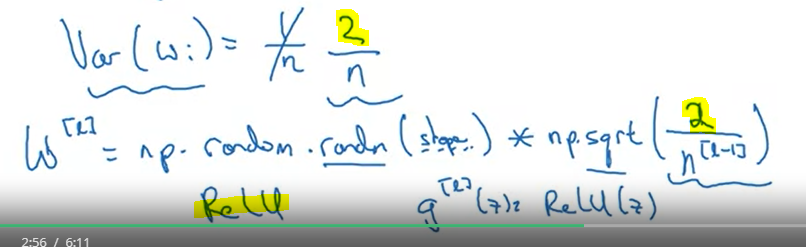 Var(wi) = 1/n 2/n
W[l] = np.random.randn(shape) * np.sqrt(2/n[l-1])
ReLU g[l](z) = ReLU(z)
2:56 / 6:11